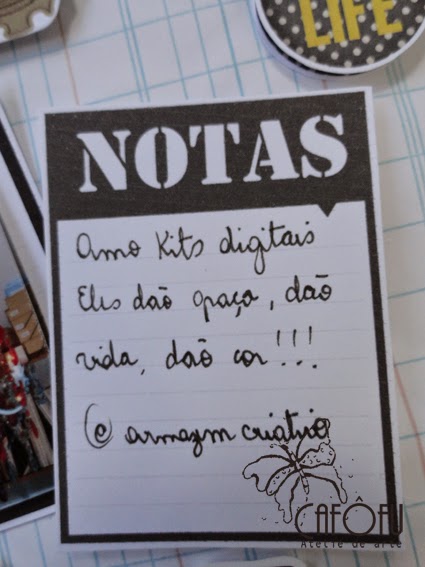 LIFE
NOTAS
Amo Kits digitais
Eles dão graça, dão
vida, dão cor!!!
@armazm criativo
CAFÔFU
Ateliê de arte